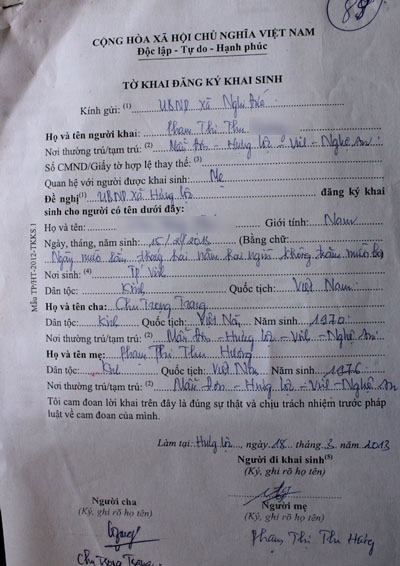 85
CỘNG HÒA XÃ HỘI CHỦ NGHĨA VIỆT NAM
Độc lập - Tự do - Hạnh phúc
TỜ KHAI ĐĂNG KÝ KHAI SINH
Kính gửi: (1) UBND xã
Họ và tên người khai: Phạm Thị Thu
Nơi thường trú/tạm trú: (2) Mẫu Đơn - Hưng Lộc - Vinh - Nghệ An
Số CMND/Giấy tờ hợp lệ thay thế: (3)
Quan hệ với người được khai sinh: Mẹ
Đề nghị (1) UBND xã Hưng Lộc đăng ký khai
sinh cho người có tên dưới đây:
Họ và tên: Giới tính: Nam
Ngày, tháng, năm sinh: 15/2/2013 (Bằng chữ:
Ngày mười lăm tháng hai năm hai nghìn không trăm mười ba
Nơi sinh: (4) TP Vinh
Dân tộc: Kinh Quốc tịch: Việt Nam
Họ và tên cha: Chu Trọng Trang
Dân tộc: Kinh Quốc tịch: Việt Nam Năm sinh 1970
Nơi thường trú/tạm trú: (2) Mẫu Đơn - Hưng Lộc - Vinh - Nghệ An
Họ và tên mẹ: Phạm Thị Thu Hương
Dân tộc: Kinh Quốc tịch: Việt Nam Năm sinh 1976
Nơi thường trú/tạm trú: (2) Mẫu Đơn - Hưng Lộc - Vinh - Nghệ An
Tôi cam đoan lời khai trên đây là đúng sự thật và chịu trách nhiệm trước pháp
luật về cam đoan của mình.
Làm tại: Hưng Lộc, ngày 18 tháng 3 năm 2013
Người đi khai sinh (5)
(Ký, ghi rõ họ tên)
Người cha
(Ký, ghi rõ họ tên)
Chu Trọng Trang
Người mẹ
(Ký, ghi rõ họ tên)
Phạm Thị Thu Hương
Mẫu TP/HT-2012-TKKS.1